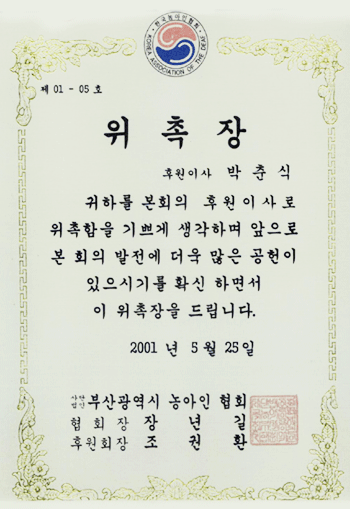 한국농아인협회
KOREA ASSOCIATION OF THE DEAF
제 01 - 05 호
위 촉 장
후원이사 박 춘 식
귀하를 본회의 후원이사로
위촉함을 기쁘게 생각하며 앞으로
본 회의 발전에 더욱 많은 공헌이
있으시기를 확신 하면서
이 위촉장을 드립니다.
2001 년 5 월 25 일
사단법인 부산광역시 농아인 협회
협 회 장 장 년 길
후원회장 조 권 환